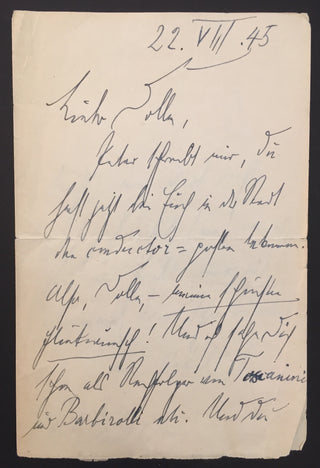 22. VIII. 45
Lieber Volla,
Peter schreibt mir, Du
hast jetzt bei Euch in der Stadt
den conductor=posten bekommen.
Also, Volla, – meinen schönsten
Glückwunsch! Und ich sehe Dich
schon als Nachfolger von Toscanini
und Barbirolli etc. Und da